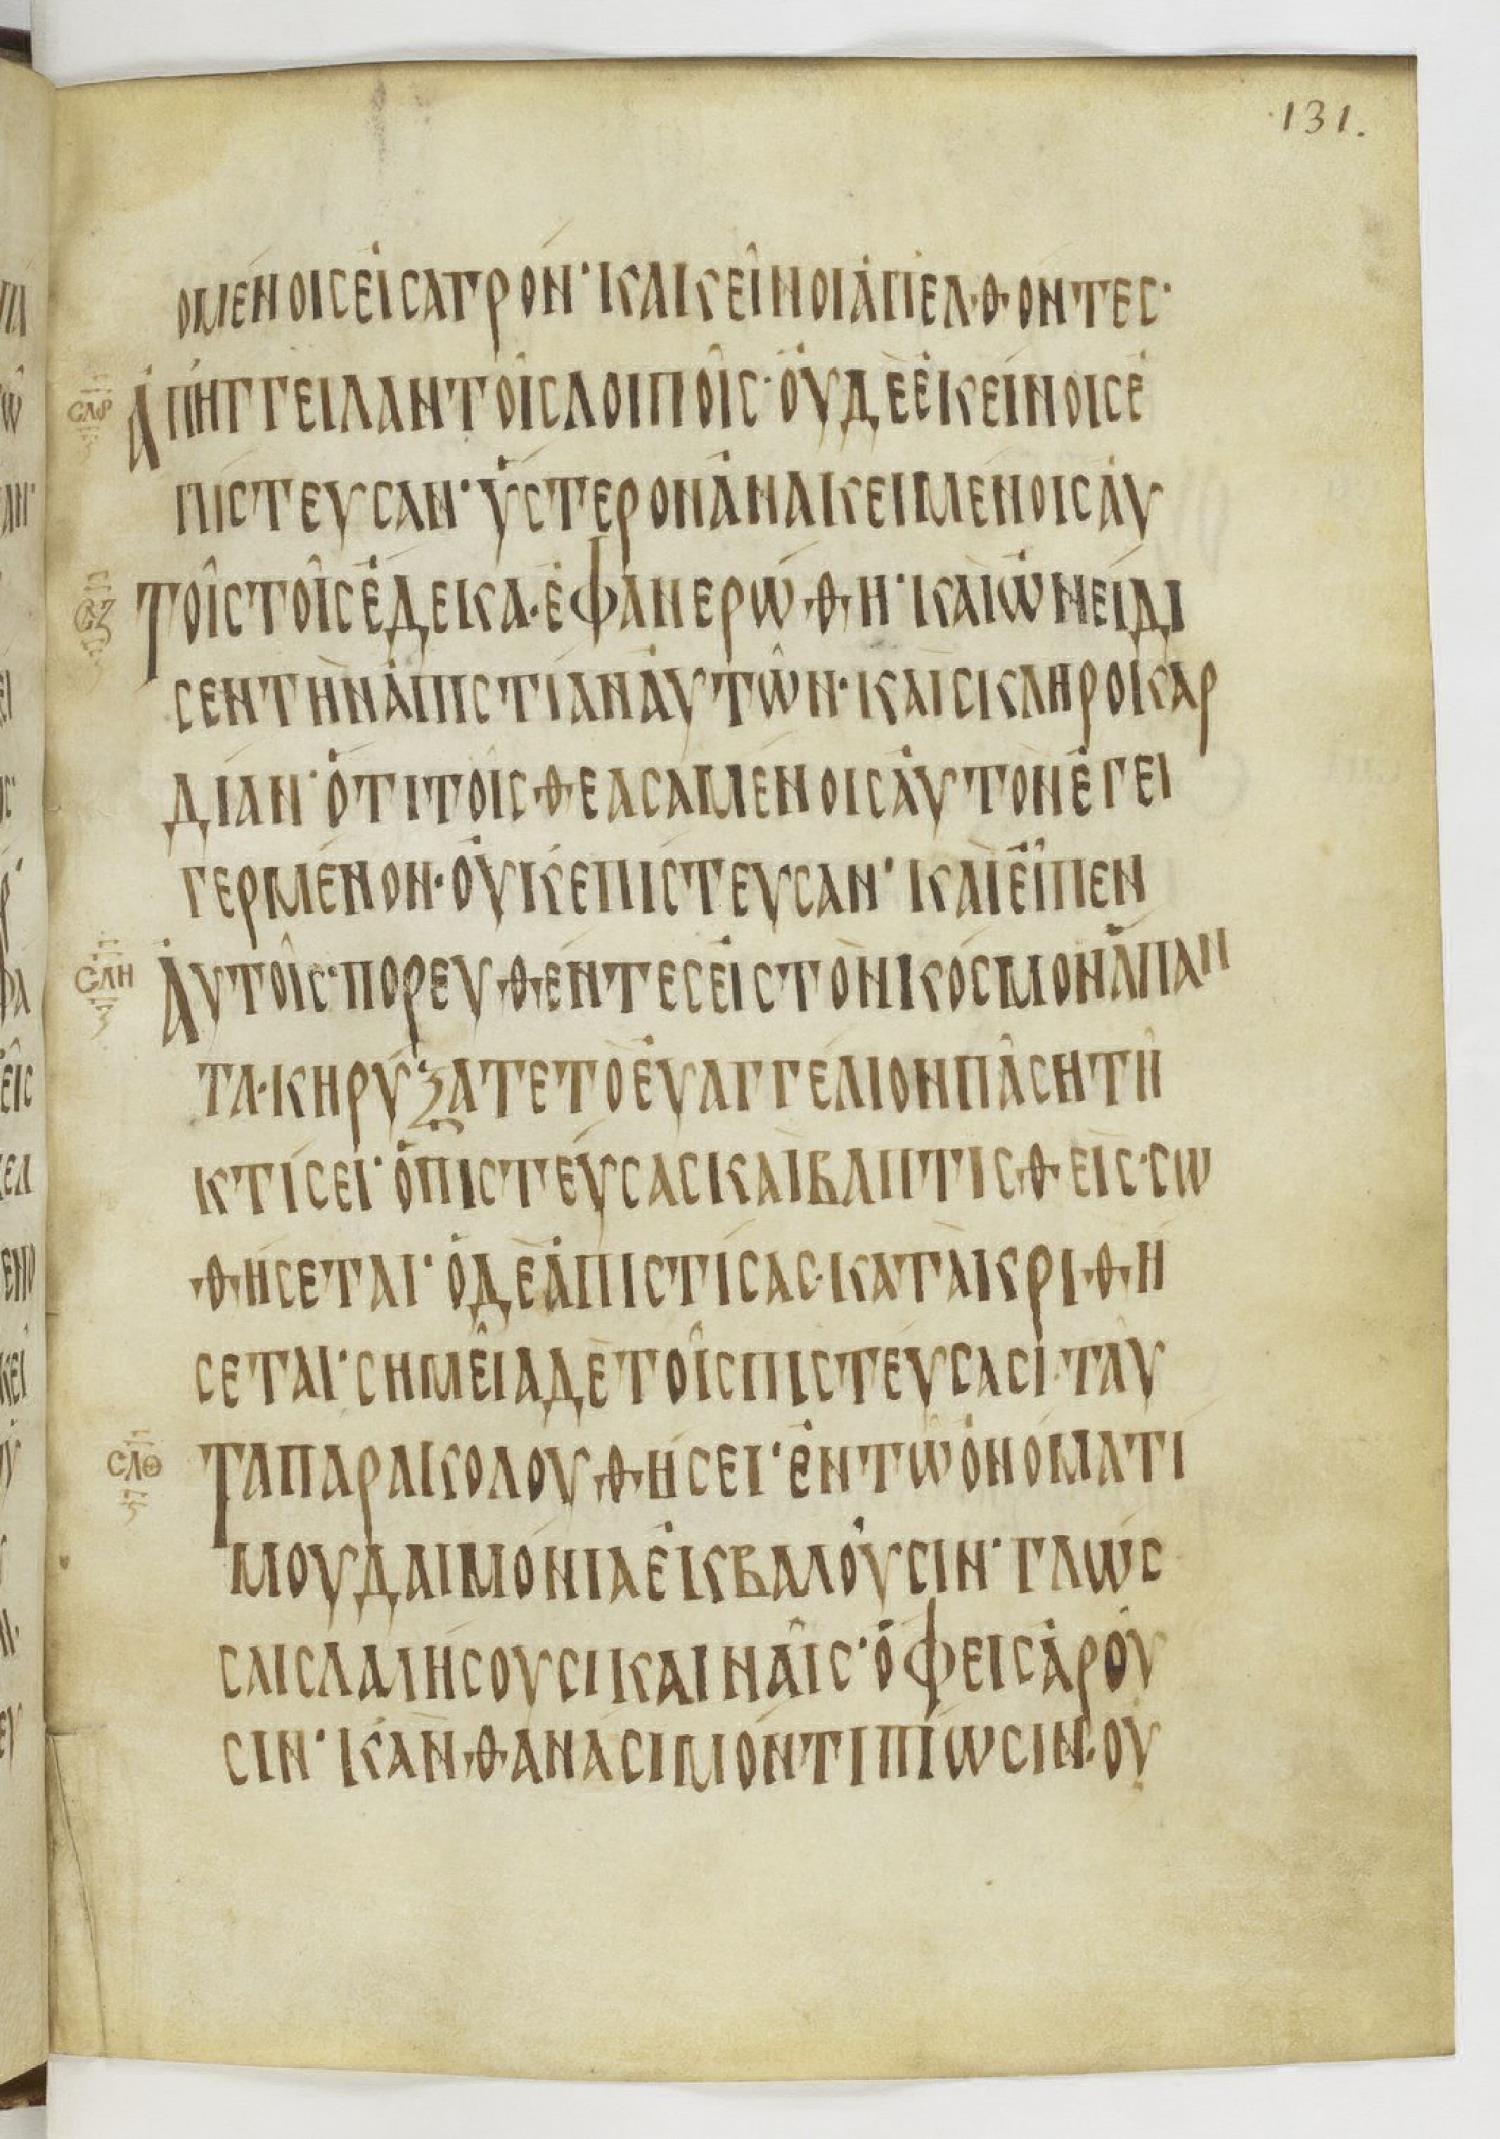 131.
ΟΜΕΝΟΙCΕΙCΑΓΡΟΝ· ΚΑΙΚΕΙΝΟΙΑΠΕΛΘΟΝΤΕC·
ΑΠΗΓΓΕΙΛΑΝΤΟΙCΛΟΙΠΟΙC· ΟΥΔΕΕΚΕΙΝΟΙCΕ
ΠΙCΤΕΥCΑΝ· ΥCΤΕΡΟΝΑΝΑΚΕΙΜΕΝΟΙCΑΥ
ΤΟΙCΤΟΙCΕΔΕΚΑ· ΕΦΑΝΕΡΩΘΗ· ΚΑΙΩΝΕΙΔΙ
CΕΝΤΗΝΑΠΙCΤΙΑΝΑΥΤΩΝ· ΚΑΙCΚΛΗΡΟΚΑΡ
ΔΙΑΝ· ΟΤΙΤΟΙCΘΕΑCΑΜΕΝΟΙCΑΥΤΟΝΕΓΕΙ
ΓΕΡΜΕΝΟΝ· ΟΥΚΕΠΙCΤΕΥCΑΝ· ΚΑΙΕΙΠΕΝ
CΛΗ ΑΥΤΟΙC· ΠΟΡΕΥΘΕΝΤΕCΕΙCΤΟΝΚΟCΜΟΝΑΠΑΝ
ΤΑ· ΚΗΡΥΞΑΤΕΤΟΕΥΑΓΓΕΛΙΟΝΠΑCΗΤΗ
ΚΤΙCΕΙ· ΟΠΙCΤΕΥCΑCΚΑΙΒΑΠΤΙCΘΕΙC· CΩ
ΘΗCΕΤΑΙ· ΟΔΕΑΠΙCΤΙCΑC· ΚΑΤΑΚΡΙΘΗ
CΕΤΑΙ· CΗΜΕΙΑΔΕΤΟΙCΠΙCΤΕΥCΑCΙ· ΤΑΥ
CΛΘ ΤΑΠΑΡΑΚΟΛΟΥΘΗCΕΙ· ΕΝΤΩΟΝΟΜΑΤΙ
ΜΟΥΔΑΙΜΟΝΙΑΕΚΒΑΛΟΥCΙΝ· ΓΛΩC
CΑΙCΛΑΛΗCΟΥCΙΚΑΙΝΑΙC· ΟΦΕΙCΑΡΟΥ
CΙΝ· ΚΑΝΘΑΝΑCΙΜΟΝΤΙΠΙΩCΙΝ· ΟΥ